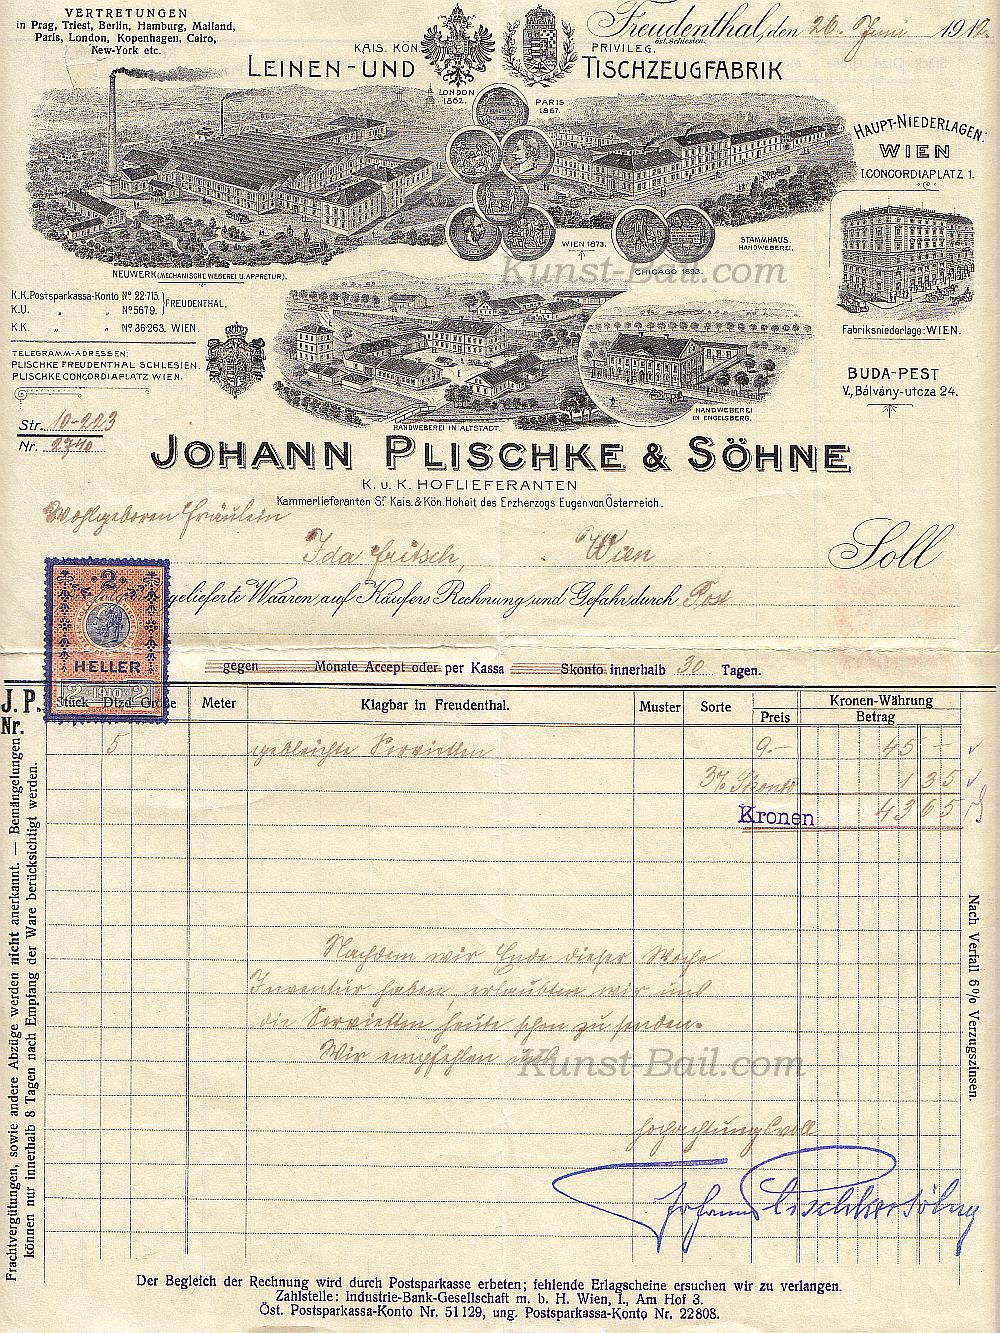 VERTRETUNGEN
in Prag, Triest, Berlin, Hamburg, Mailand,
Paris, London, Kopenhagen, Cairo,
New-York etc.
Freudenthal, den 26. Juni 1912
öst. Schlesien.
KAIS. KÖN. PRIVILEG.
LEINEN- UND TISCHZEUGFABRIK
LONDON
1862.
PARIS
1867.
HAUPT-NIEDERLAGEN:
WIEN
I. CONCORDIAPLATZ 1.
WIEN 1873.
CHICAGO 1893.
STAMMHAUS.
HANDWEBEREI.
Kunst-Bail.com
NEUWERK (MECHANISCHE WEBEREI U. APPRETUR).
K.K. Postsparkassa-Konto No 22·715. FREUDENTHAL.
K.U. " " No 5679.
K.K. " " No 36·263. WIEN.
TELEGRAMM-ADRESSEN:
PLISCHKE FREUDENTHAL SCHLESIEN.
PLISCHKE CONCORDIAPLATZ WIEN.
Fabriksniederlage: WIEN.
BUDA-PEST
V., Bálvány-utcza 24.
HANDWEBEREI
IN ENGELSBERG.
HANDWEBEREI IN ALTSTADT.
Str. 10-223
Nr. 2740
JOHANN PLISCHKE & SÖHNE
K. u. K. HOFLIEFERANTEN
Kammerlieferanten Sr. Kais. & Kön. Hoheit des Erzherzogs Eugen von Österreich.
Wohlgeboren Fräulein
Ida Fritsch, Wien
Soll
gelieferte Waaren, auf Käufers Rechnung und Gefahr durch Post
gegen Monate Accept oder per Kassa Skonto innerhalb 30 Tagen.
2
HELLER
2 1910 2
J. P. Nr.
Stück Dtzd Große Meter Klagbar in Freudenthal. Muster Sorte Preis Kronen-Währung Betrag
5 gebleichte Servietten 9.- 45 -
3% Skonto 1 35
Kronen 43 65
Nachdem wir Ende dieser Woche
Inventur haben, erlaubten wir uns
die Servietten heute schon zu senden.
Wir empfehlen uns
Kunst-Bail.com
hochachtungsvoll
Johann Plischke & Söhne
Frachtvergütungen, sowie andere Abzüge werden nicht anerkannt. — Bemängelungen
können nur innerhalb 8 Tagen nach Empfang der Ware berücksichtigt werden.
Nach Verfall 6% Verzugszinsen.
Der Begleich der Rechnung wird durch Postsparkasse erbeten; fehlende Erlagscheine ersuchen wir zu verlangen.
Zahlstelle: Industrie-Bank-Gesellschaft m. b. H. Wien, I., Am Hof 3.
Öst. Postsparkassa-Konto Nr. 51129, ung. Postsparkassa-Konto Nr. 22808.